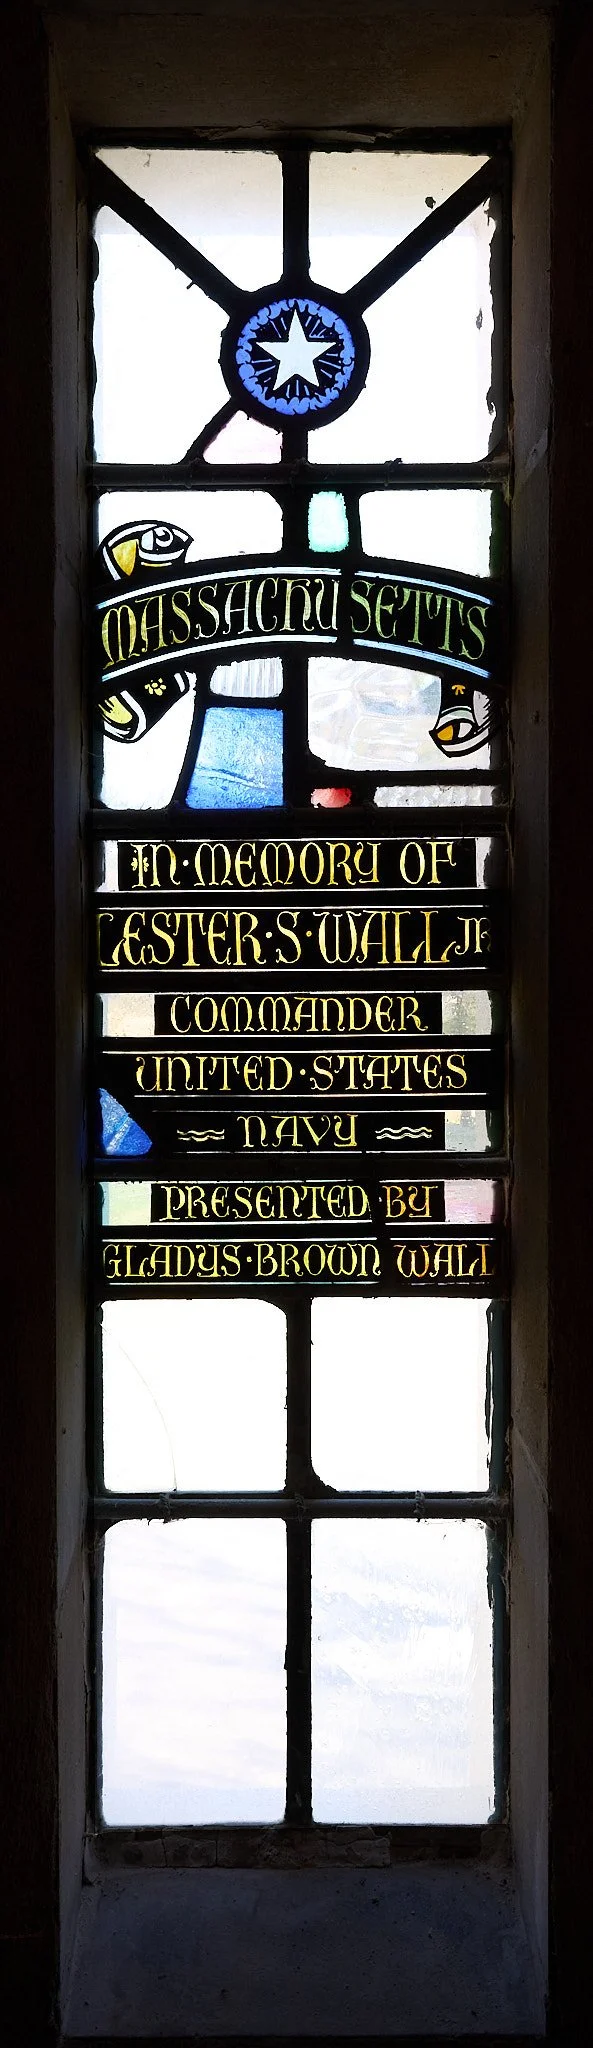 MASSACHUSETTS
IN·MEMORY OF
LESTER·S·WALL JR
COMMANDER
UNITED·STATES
NAVY
PRESENTED BY
GLADYS·BROWN WALL